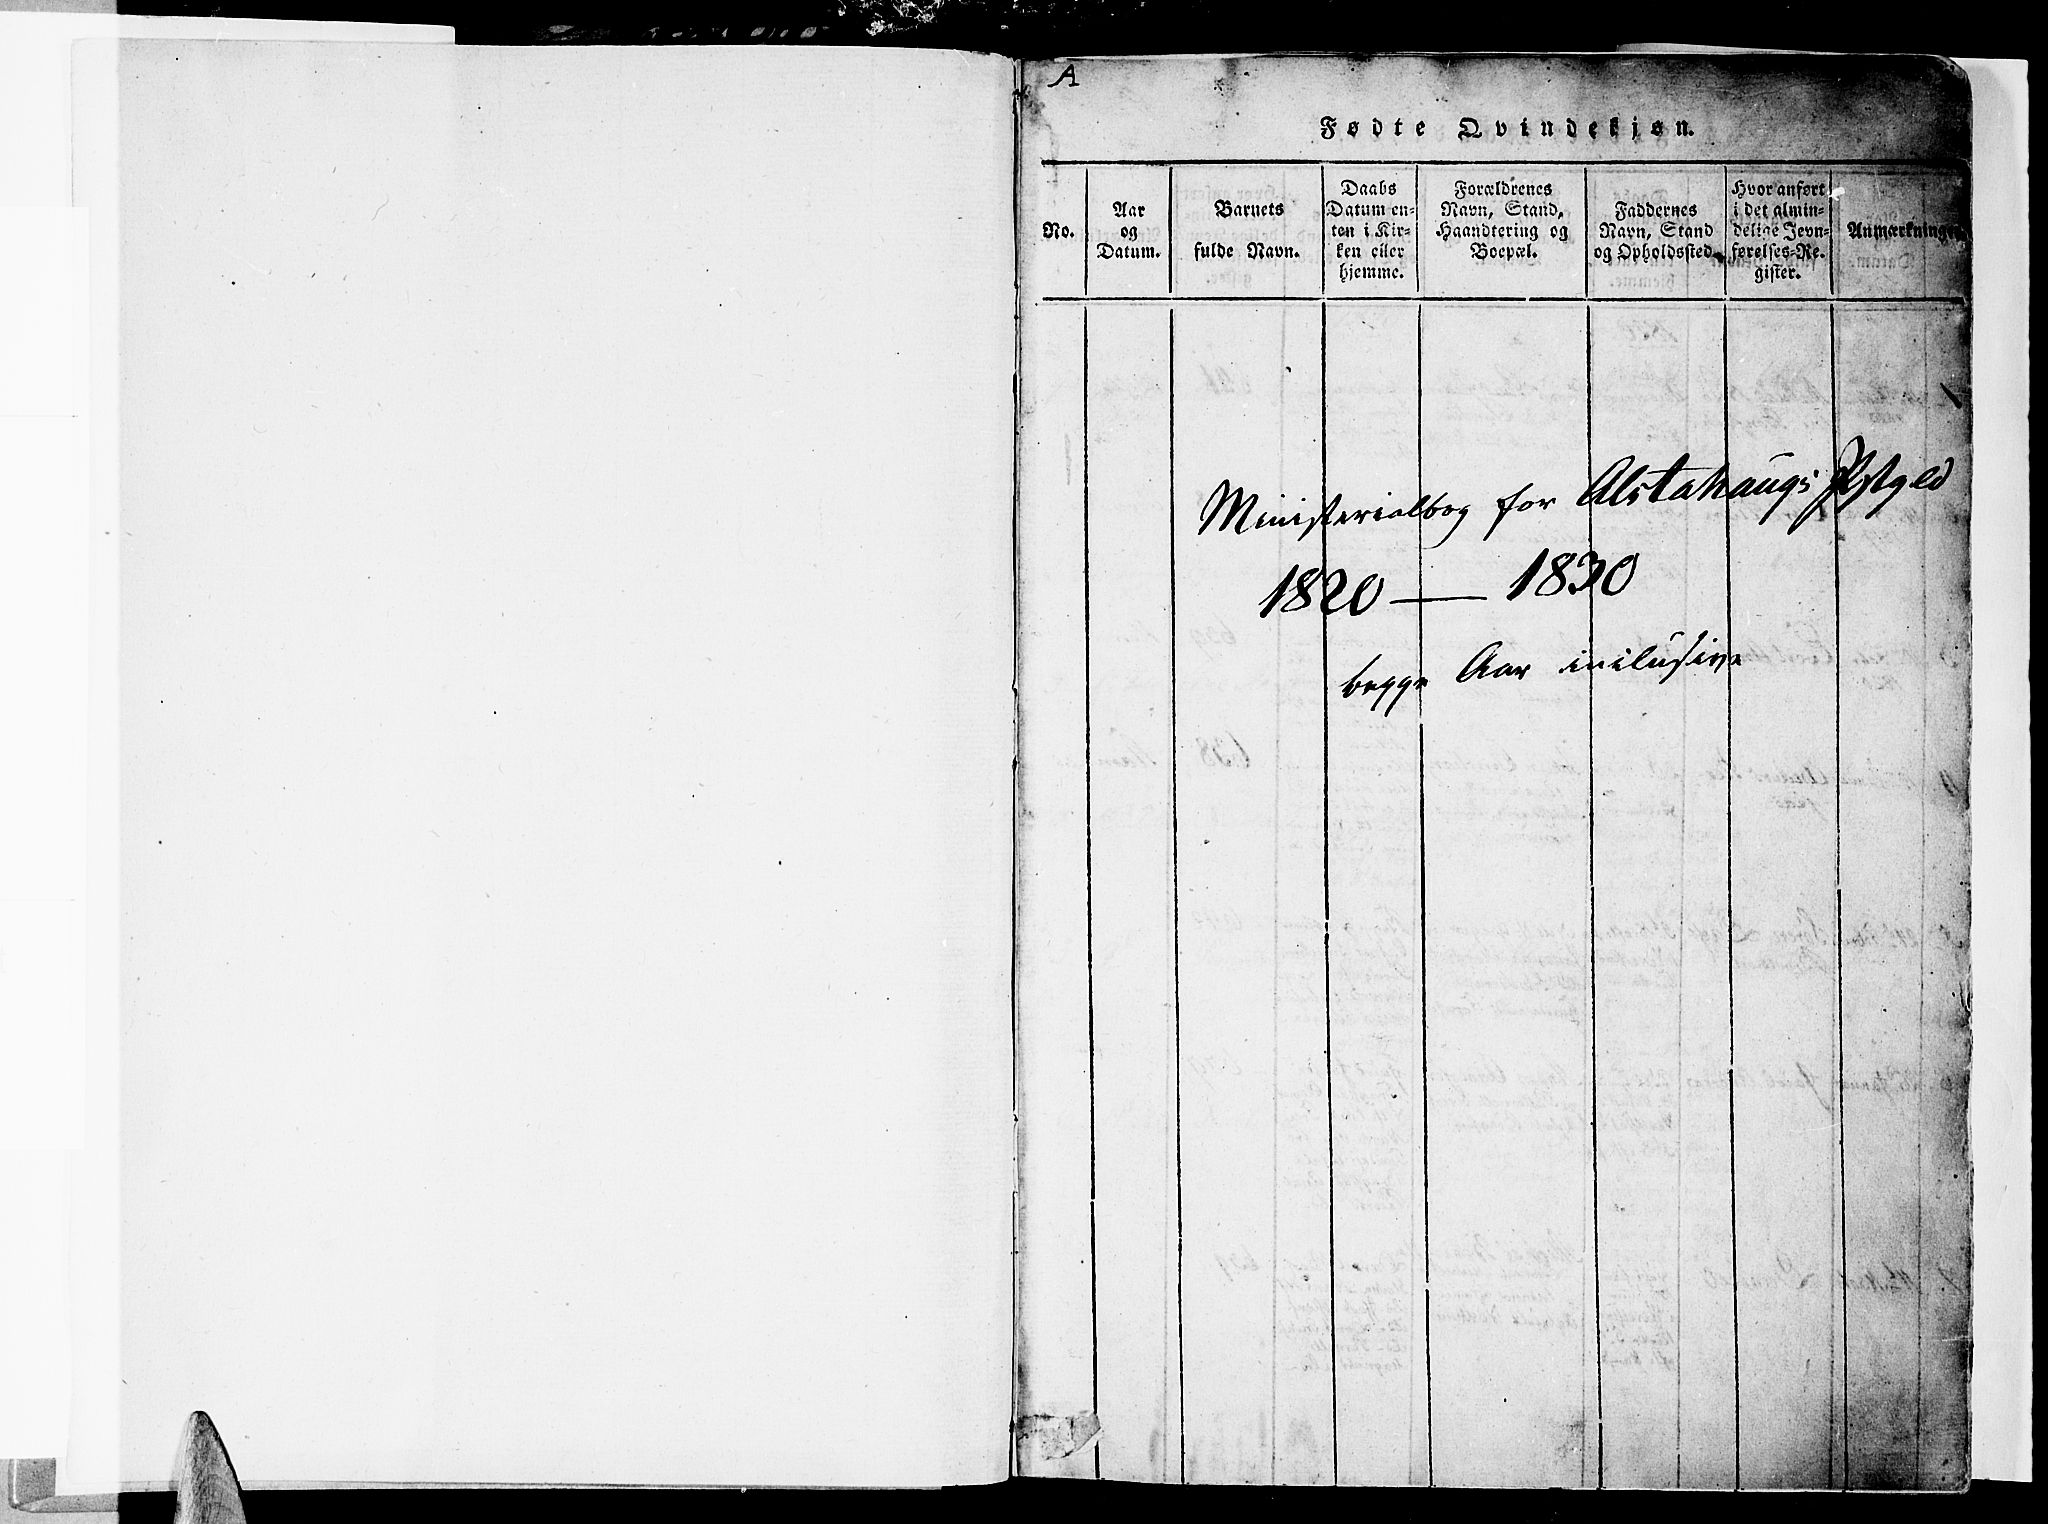 A
Fødte Qvindekjøn.
No.
Aar
og
Datum.
Barnets
fulde Navn.
Daabs
Datum en-
ten i Kir-
ken eller
hjemme.
Forældrenes
Navn, Stand,
Haandtering og
Boepæl.
Faddernes
Navn, Stand
og Opholdssted.
Hvor anført
i det almin-
delige Jevn-
førelses-Re-
gister.
Anmærkninger
Ministerialbog for Alstahaugs Pstgld
1820 — 1830
begge Aar inclusive